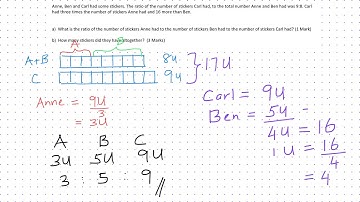 Anne, Ben and Carl had some stickers. The ratio of the number of stickers Carl had, to the total number Anne and Ben had was 9:8. Carl
had three times the number of stickers Anne had and 16 more than Ben.
a) What is the ratio of the number of stickers Anne had to the number of stickers Ben had to the number of stickers Carl had? (1 Mark)
b) How many stickers did they have together? (3 Marks)
A B
A+B 8u
C 9u
} 17u
Anne = 9u
3
= 3u
A B C
3u 5u 9u
3 : 5 : 9 //
Carl = 9u
Ben = 5u -
4u = 16
1u = 16
4
= 4